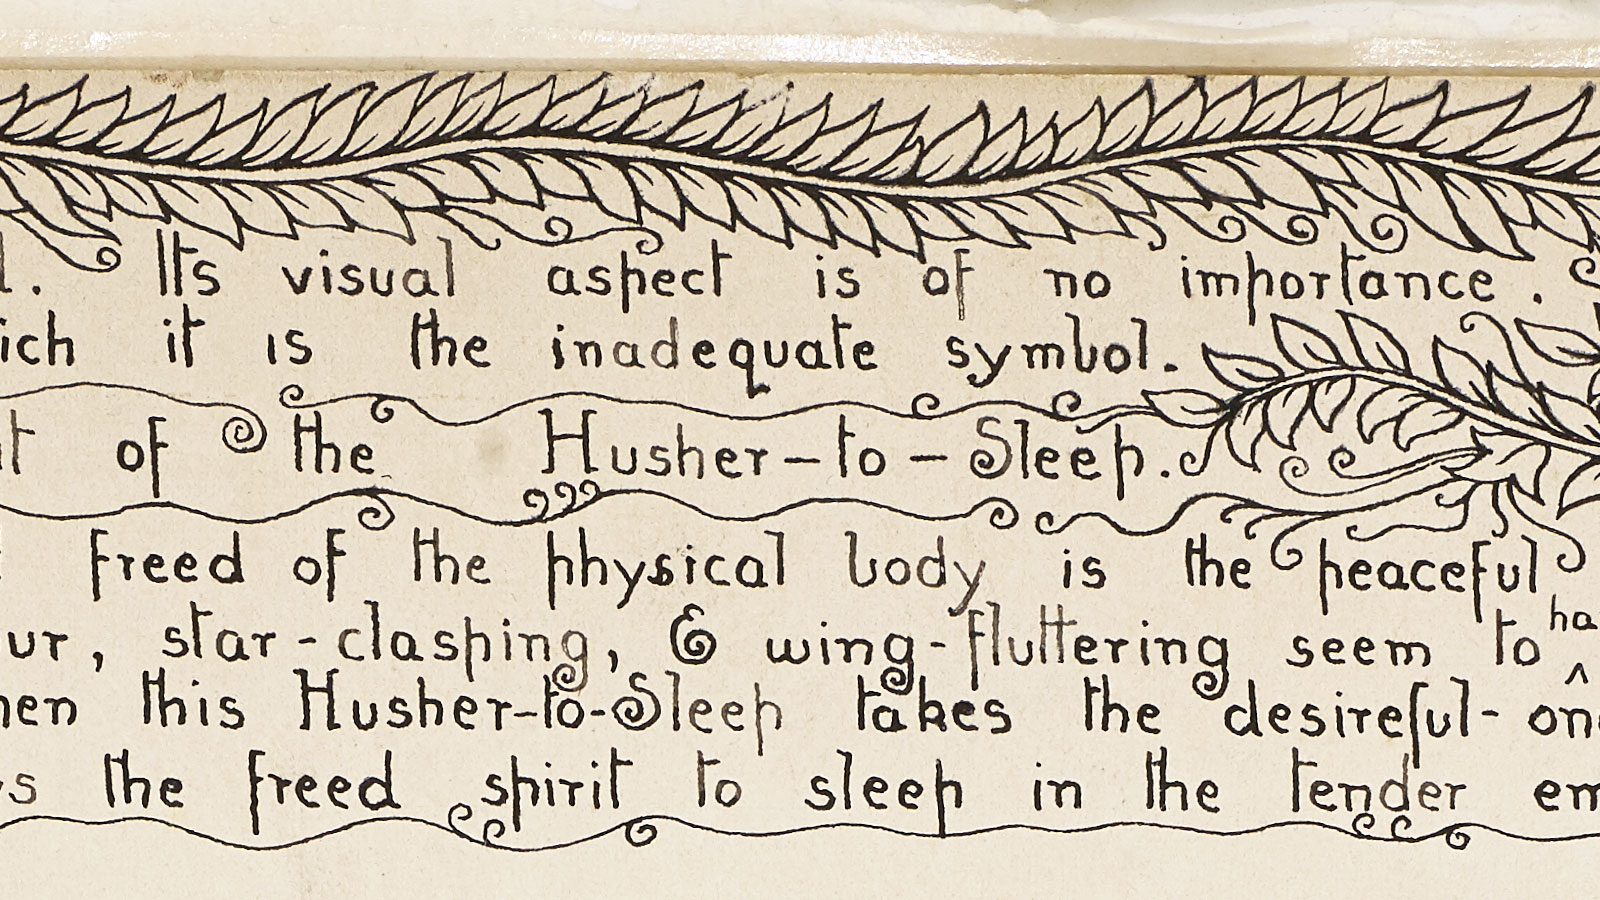 . Its visual aspect is of no importance.
ich it is the inadequate symbol.
of the Husher-to-Sleep.
freed of the physical body is the peaceful
ur, star-clasping, & wing-fluttering seem to ha
en this Husher-to-Sleep takes the desireful-on
s the freed spirit to sleep in the tender em